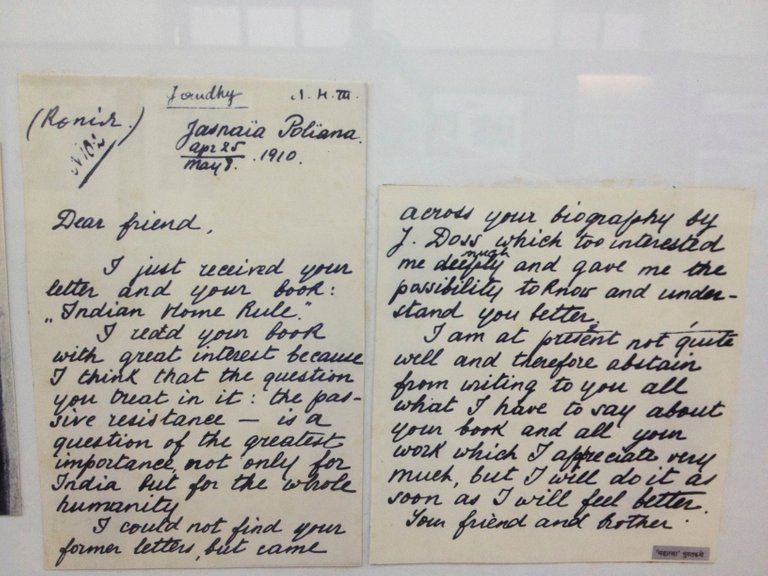 Gandhy
Jasnaïa Poliana.
apr 25
may 8. 1910.
Dear friend,
I just received your
letter and your book:
„Indian Home Rule".
I read your book
with great interest because
I think that the question
you treat in it: the pas-
sive resistance — is a
question of the greatest
importance not only for
India but for the whole
humanity
I could not find your
former letters, but came
across your biography by
J. Doss which too interested
me deeply much and gave me the
possibility to know and under-
stand you better.
I am at present not quite
well and therefore abstain
from writing to you all
what I have to say about
your book and all your
work which I appreciate very
much, but I will do it as
soon as I will feel better.
Your friend and brother.